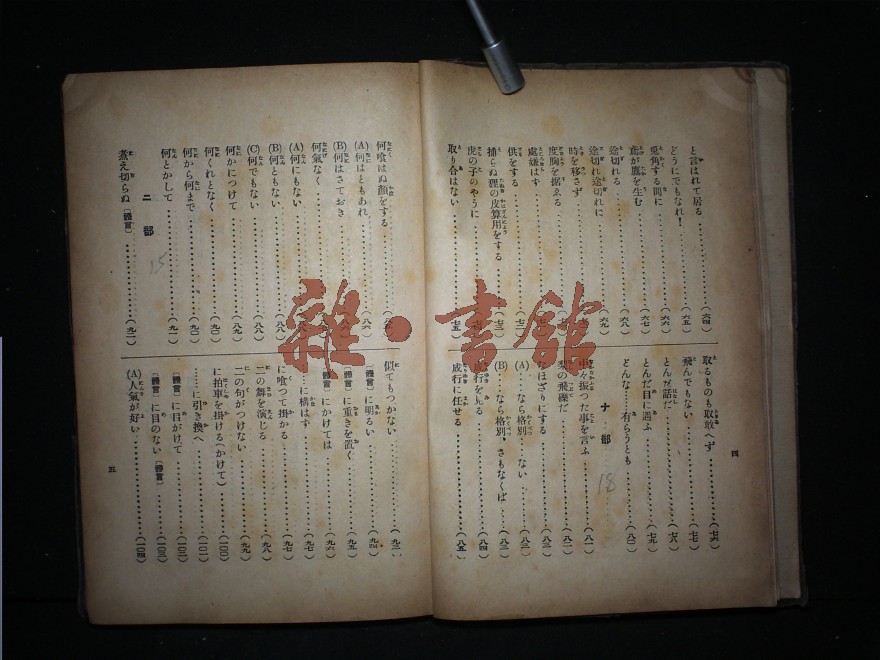 と言はれて居る……(六四)
どうにでもなれ!……(六五)
兎角する間に……(六七)
鳶が鷹を生む……(六六)
途切れる……(六八)
途切れ途切れに……(六九)
時を移さず
度胸を据ゑる
處嫌はず
供をする
捕らぬ狸の皮算用をする
虎の子のやうに
取り合はない
取るものも取敢へず……(七六)
飛んでもない……(七七)
とんだ話だ……(七八)
とんだ目に遇ふ……(七九)
どんな……有らうとも……(八〇)
ナ部
18
振つた事を言ふ……(八一)
梨の飛礫だ……(八二)
なほざりにする……(八二)
(A)……なら格別、……ない……(八三)
(B)……なら格別、さもなくば……(八三)
成行を見る……(八四)
成行に任せる……(八五)
四
何喰はぬ顔をする
(A)何はともあれ……(八六)
(B)何はさておき
何氣なく
(A)何にもない
(B)何ともない
(C)何でもない……(八八)
何かにつけて……(八九)
何くれとなく……(九〇)
何から何まで……(九〇)
何とかして……(九一)
ニ部
15
煮え切らぬ〔體言〕……(九二)
似てもつかない……(九三)
〔體言〕に明るい……(九四)
〔體言〕に重きを置く……(九五)
〔體言〕にかけては……(九六)
……に橫はす……(九七)
に喰つて掛かる……(九七)
二の舞を演じる……(九八)
二の句がつけない……(九九)
に拍車を掛ける(かけて)……(一〇〇)
……に引き換へ……(一〇一)
〔體言〕に目がけて……(一〇二)
〔體言〕に目のない〔體言〕……(一〇三)
(A)人氣が好い……(一〇四)
五
雜・書館